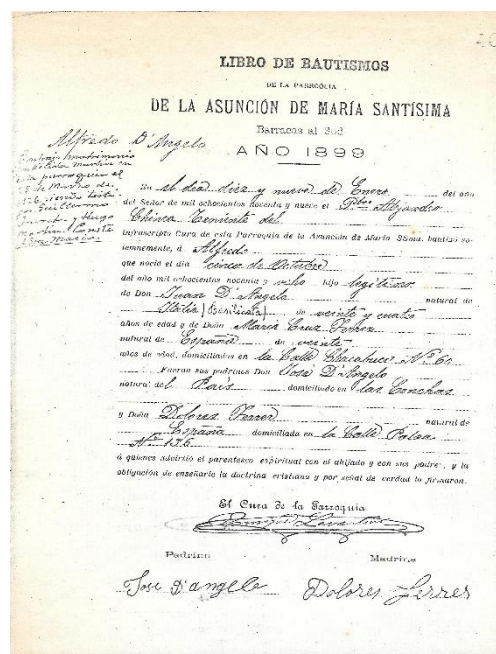 LIBRO DE BAUTISMOS
DE LA PARROQUIA
DE LA ASUNCIÓN DE MARÍA SANTÍSIMA
Barracas al Sud
AÑO 1899
Alfredo D'Angelo
Contrajo matrimonio
parroquia el
de Marzo de
En el dia diez y nueve de Enero del año
del Señor de mil ochocientos noventa y nueve el Pbro Alejandro
Chirca Teniente del
infrascripto Cura de esta Parroquia de la Asunción de María SSma. bautizó so-
lemnemente, á Alfredo
que nació el día cinco de Octubre
del año mil ochocientos noventa y ocho hijo legítimo
de Don Juan D'Angelo natural de
Italia (Basilicata) de veinte y cuatro
años de edad y de Doña María Cruz Ferrer
natural de España de veinte
años de edad, domiciliados en la Calle Chacabuco Nº 60
Fueron sus padrinos Don José D'Angelo
natural del País domiciliado en las Conchas
y Doña Dolores Ferrer natural de
España domiciliada en la Calle
Nº 136
á quienes advirtió el parentesco espiritual con el ahijado y con sus padres, y la
obligación de enseñarle la doctrina cristiana y por señal de verdad lo firmaron.
El Cura de la Parroquia
Padrino Madrina
Jose D'angelo Dolores Ferrer